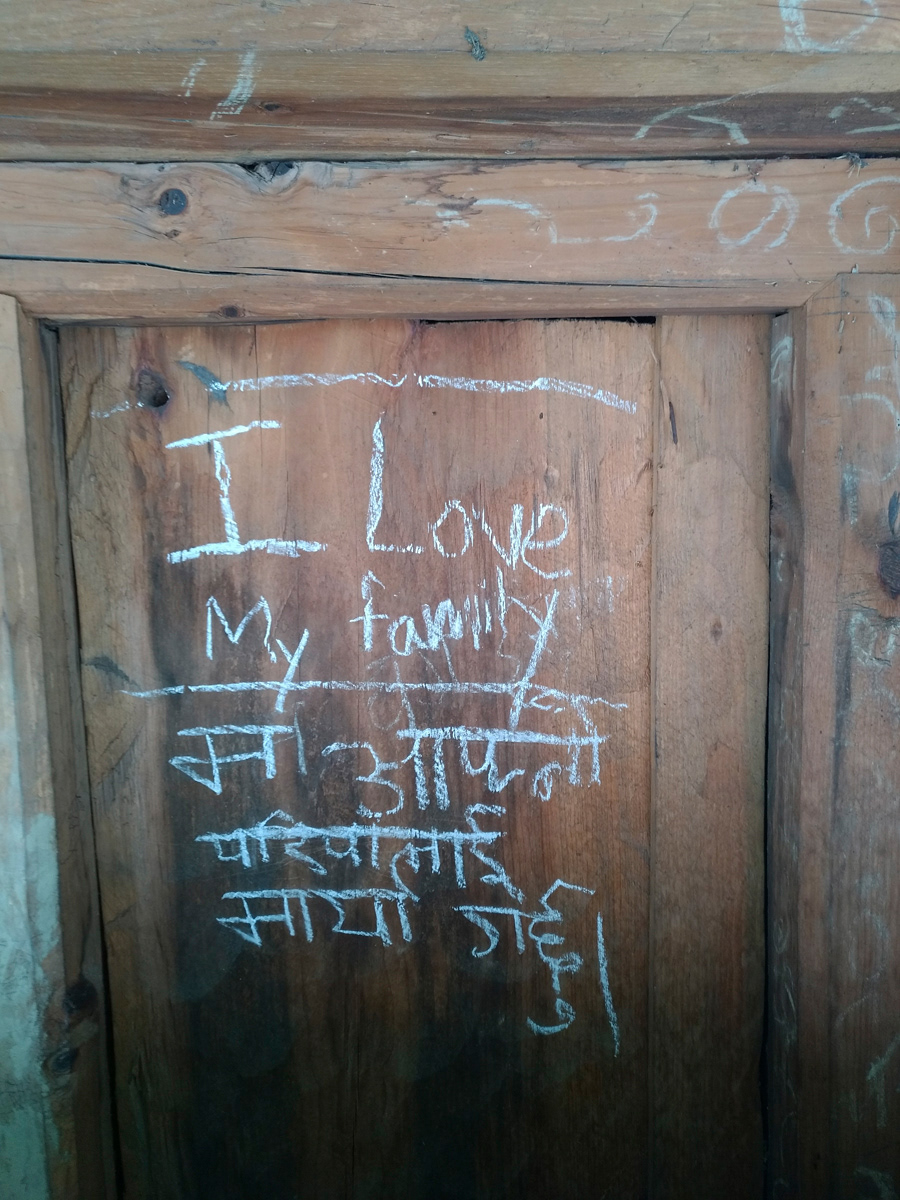 I Love
My family
म आफ्नो
परिवालाई
माया गर्छु।